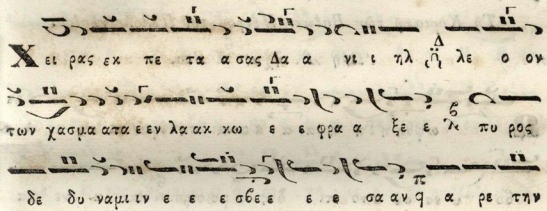 Χει ρας εκ πε τα α σας Δα α νι ι ηλ λε ο ον
των χασμα ατα ε εν λα ακ κω ε ε φρα α ξε ε πυ ρος
δε δυ ναμι ιν ε ε ε σβε ε ε ε σα αν α ρε την